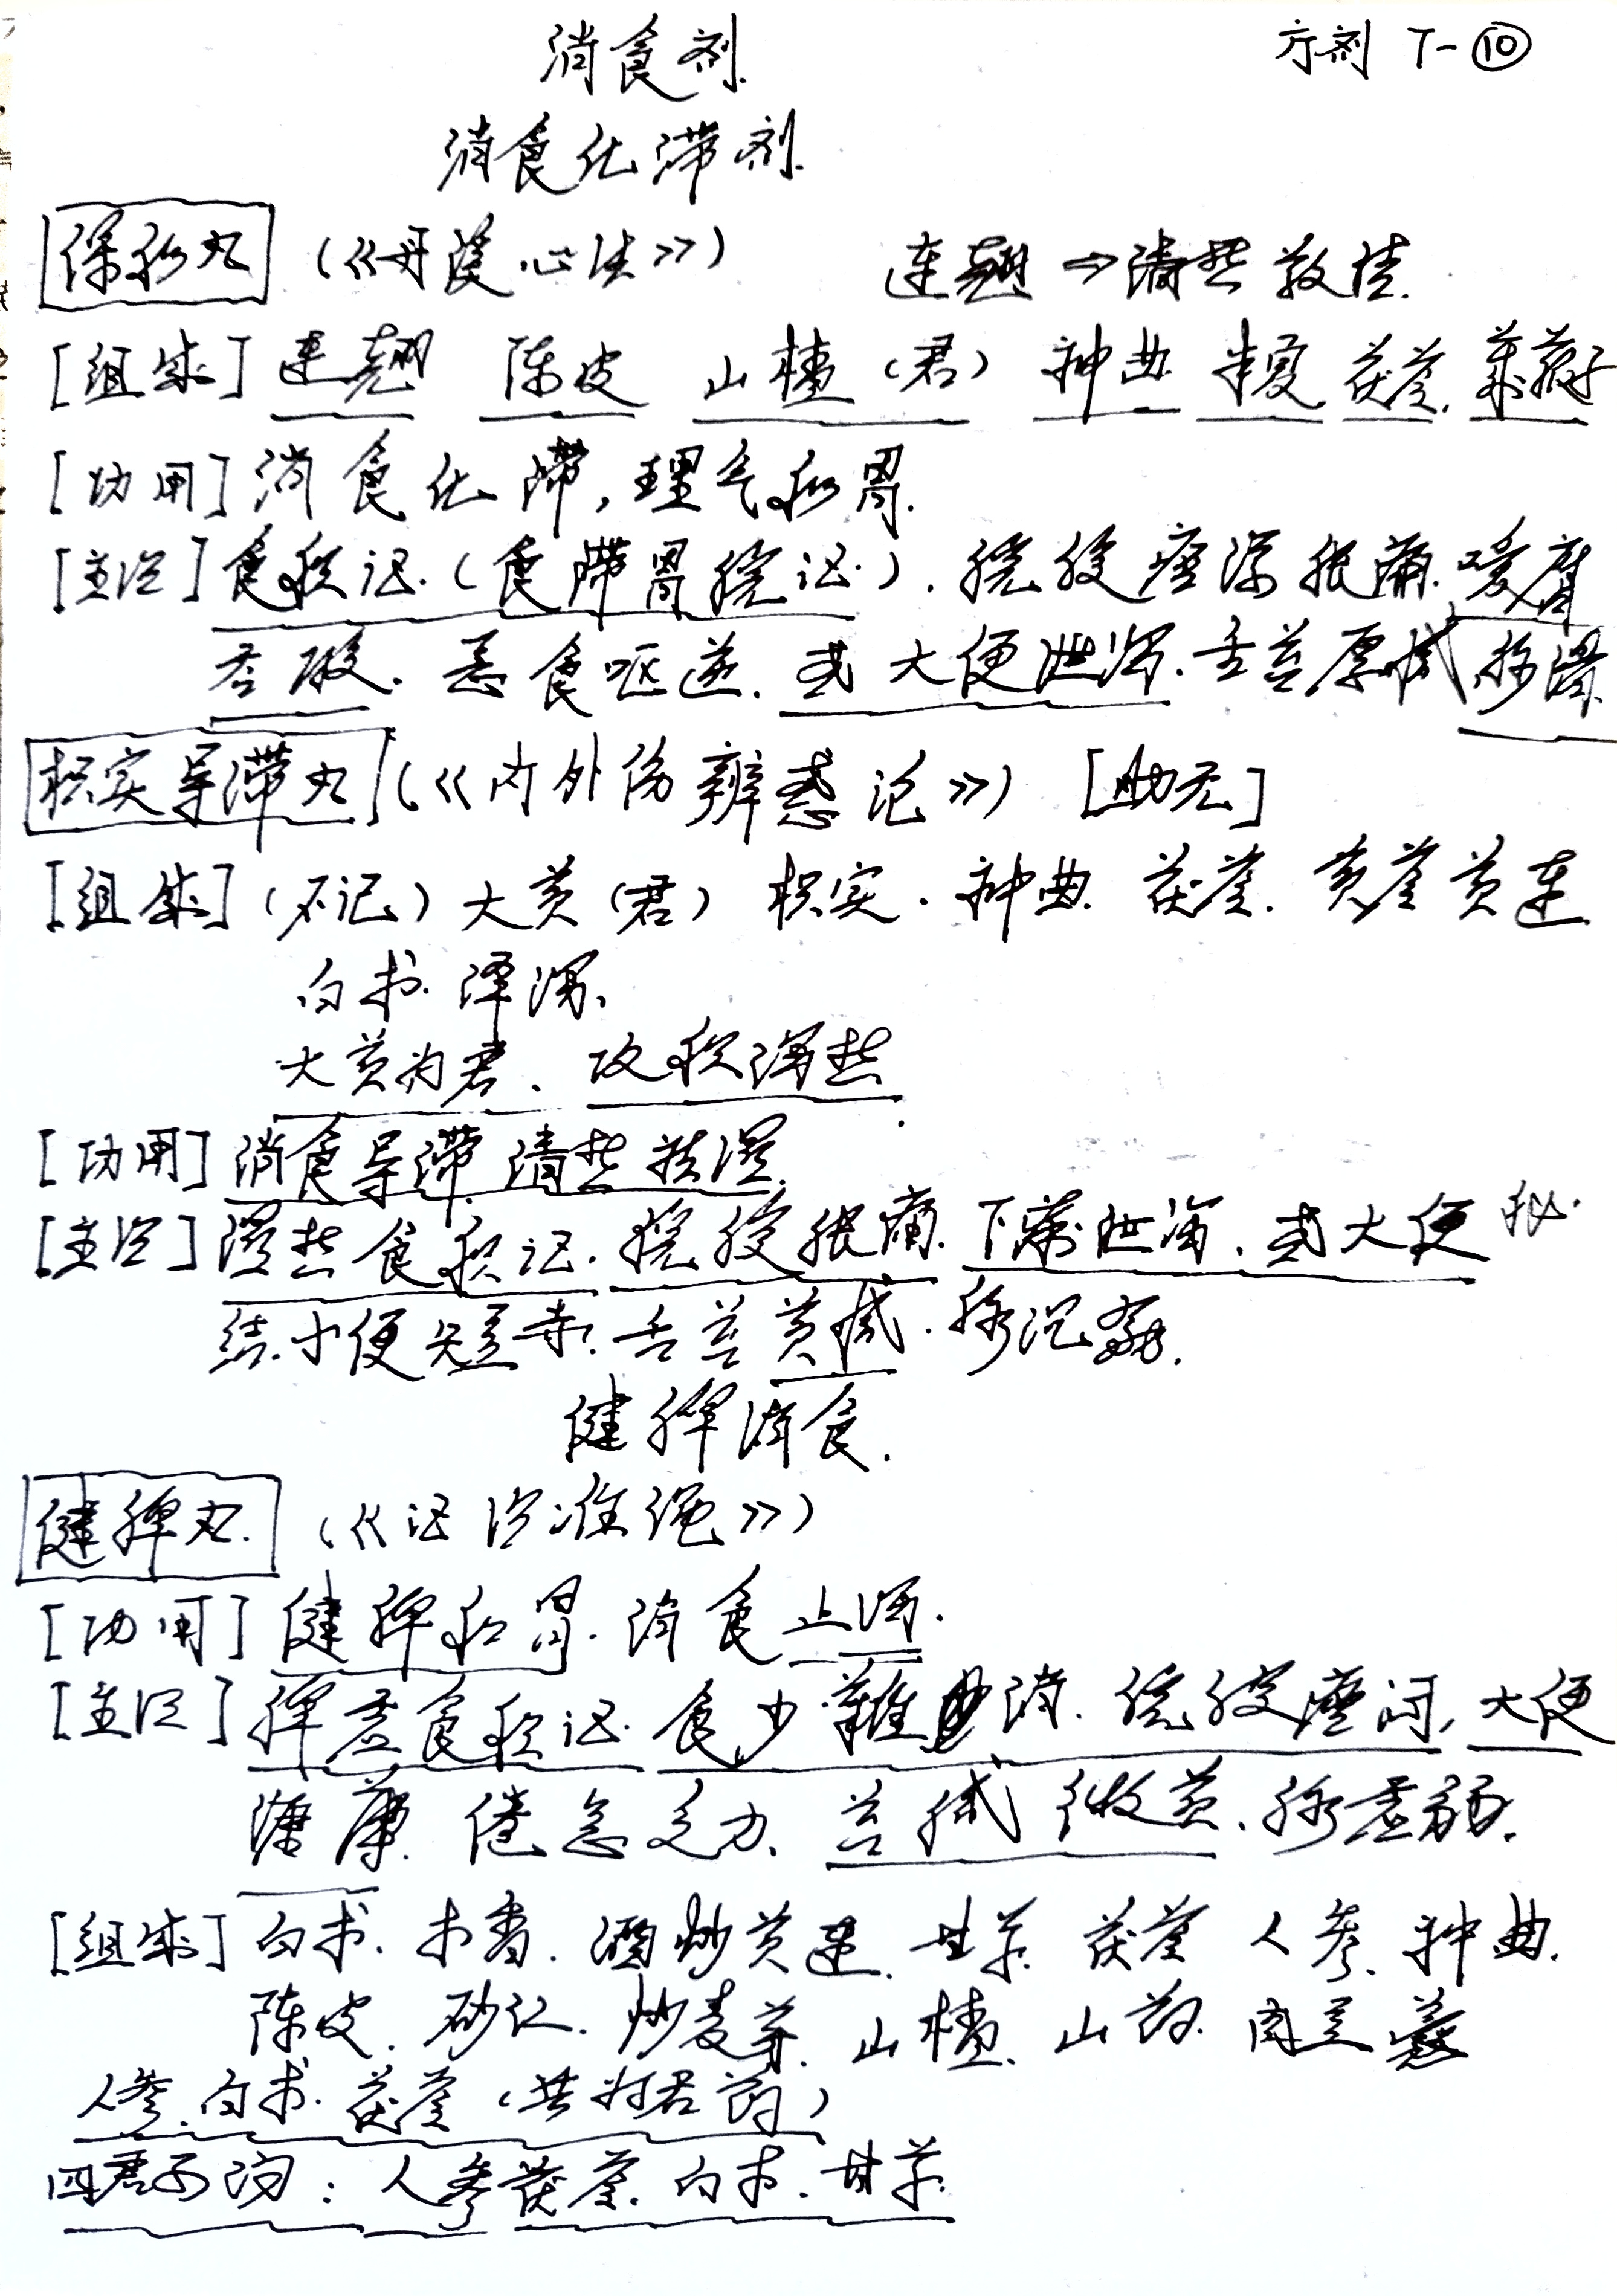 方剂 T-⑩
消食剂.
消食化滞剂.
保和丸 (《丹溪心法》) 连翘→清热散结.
[组成] 连翘 陈皮 山楂(君) 神曲 半夏 茯苓. 莱菔子
[功用] 消食化滞,理气和胃.
[主治] 食积证.(食滞胃脘证). 脘腹痞满胀痛.嗳腐
吞酸. 恶食呕逆. 或大便泄泻. 舌苔厚腻 脉滑.
枳实导滞丸 (《内外伤辨惑论》) [助无]
[组成] (不记) 大黄(君) 枳实. 神曲. 茯苓. 黄芩 黄连
白术. 泽泻.
大黄为君. 攻积泻热.
[功用] 消食导滞.清热祛湿.
[主治] 湿热食积证. 脘腹胀痛. 下痢泄泻. 或大便秘.
结.小便短赤. 舌苔黄腻. 脉沉有力.
健脾消食.
健脾丸. (《证治准绳》)
[功用] 健脾和胃. 消食止泻.
[主治] 脾虚食积证. 食少难消. 脘腹痞闷, 大便
溏薄. 倦怠乏力. 苔腻微黄. 脉虚弱.
[组成] 白术. 木香. 酒炒黄连. 甘草. 茯苓 人参. 神曲.
陈皮. 砂仁. 炒麦芽. 山楂. 山药. 肉豆蔻
人参.白术.茯苓(共为君药)
四君子汤: 人参茯苓. 白术. 甘草.